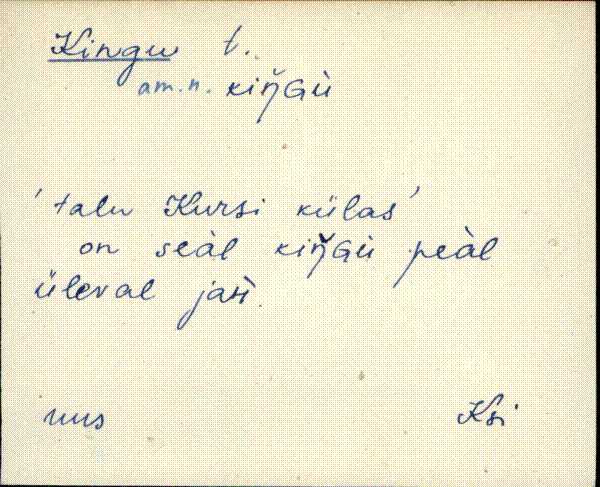 Kingu t.
am.n. kiŋ̆Gù
'talu Kursi külas'
on seàl kiŋ̆Gù peàl
üleval
uus Ksi